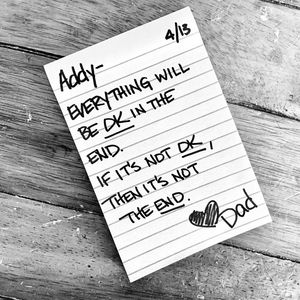 4/13
Addy-
EVERYTHING WILL
BE OK IN THE
END.
IF IT'S NOT OK,
THEN IT'S NOT
THE END.
Dad